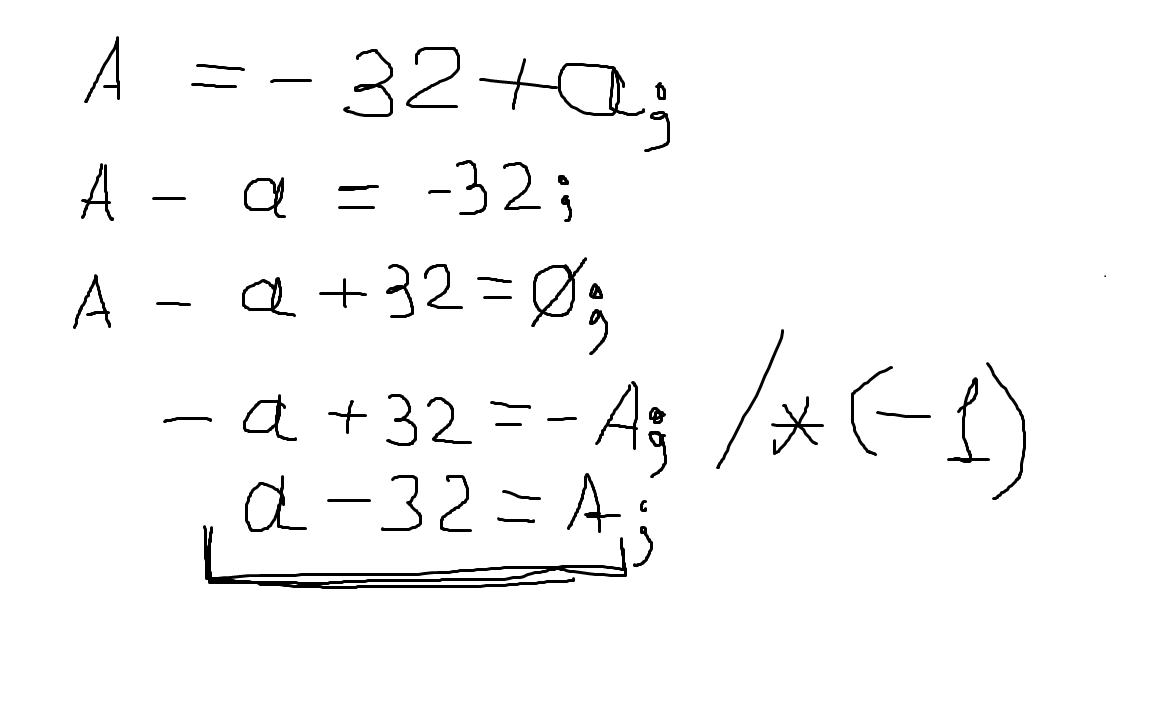 A = - 32 + a;
A - a = -32;
A - a + 32 = Ø;
- a + 32 = - A; / * (-1)
a - 32 = A;